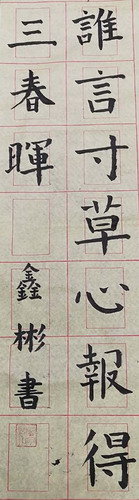 誰言寸草心報得
三春暉
鑫彬書